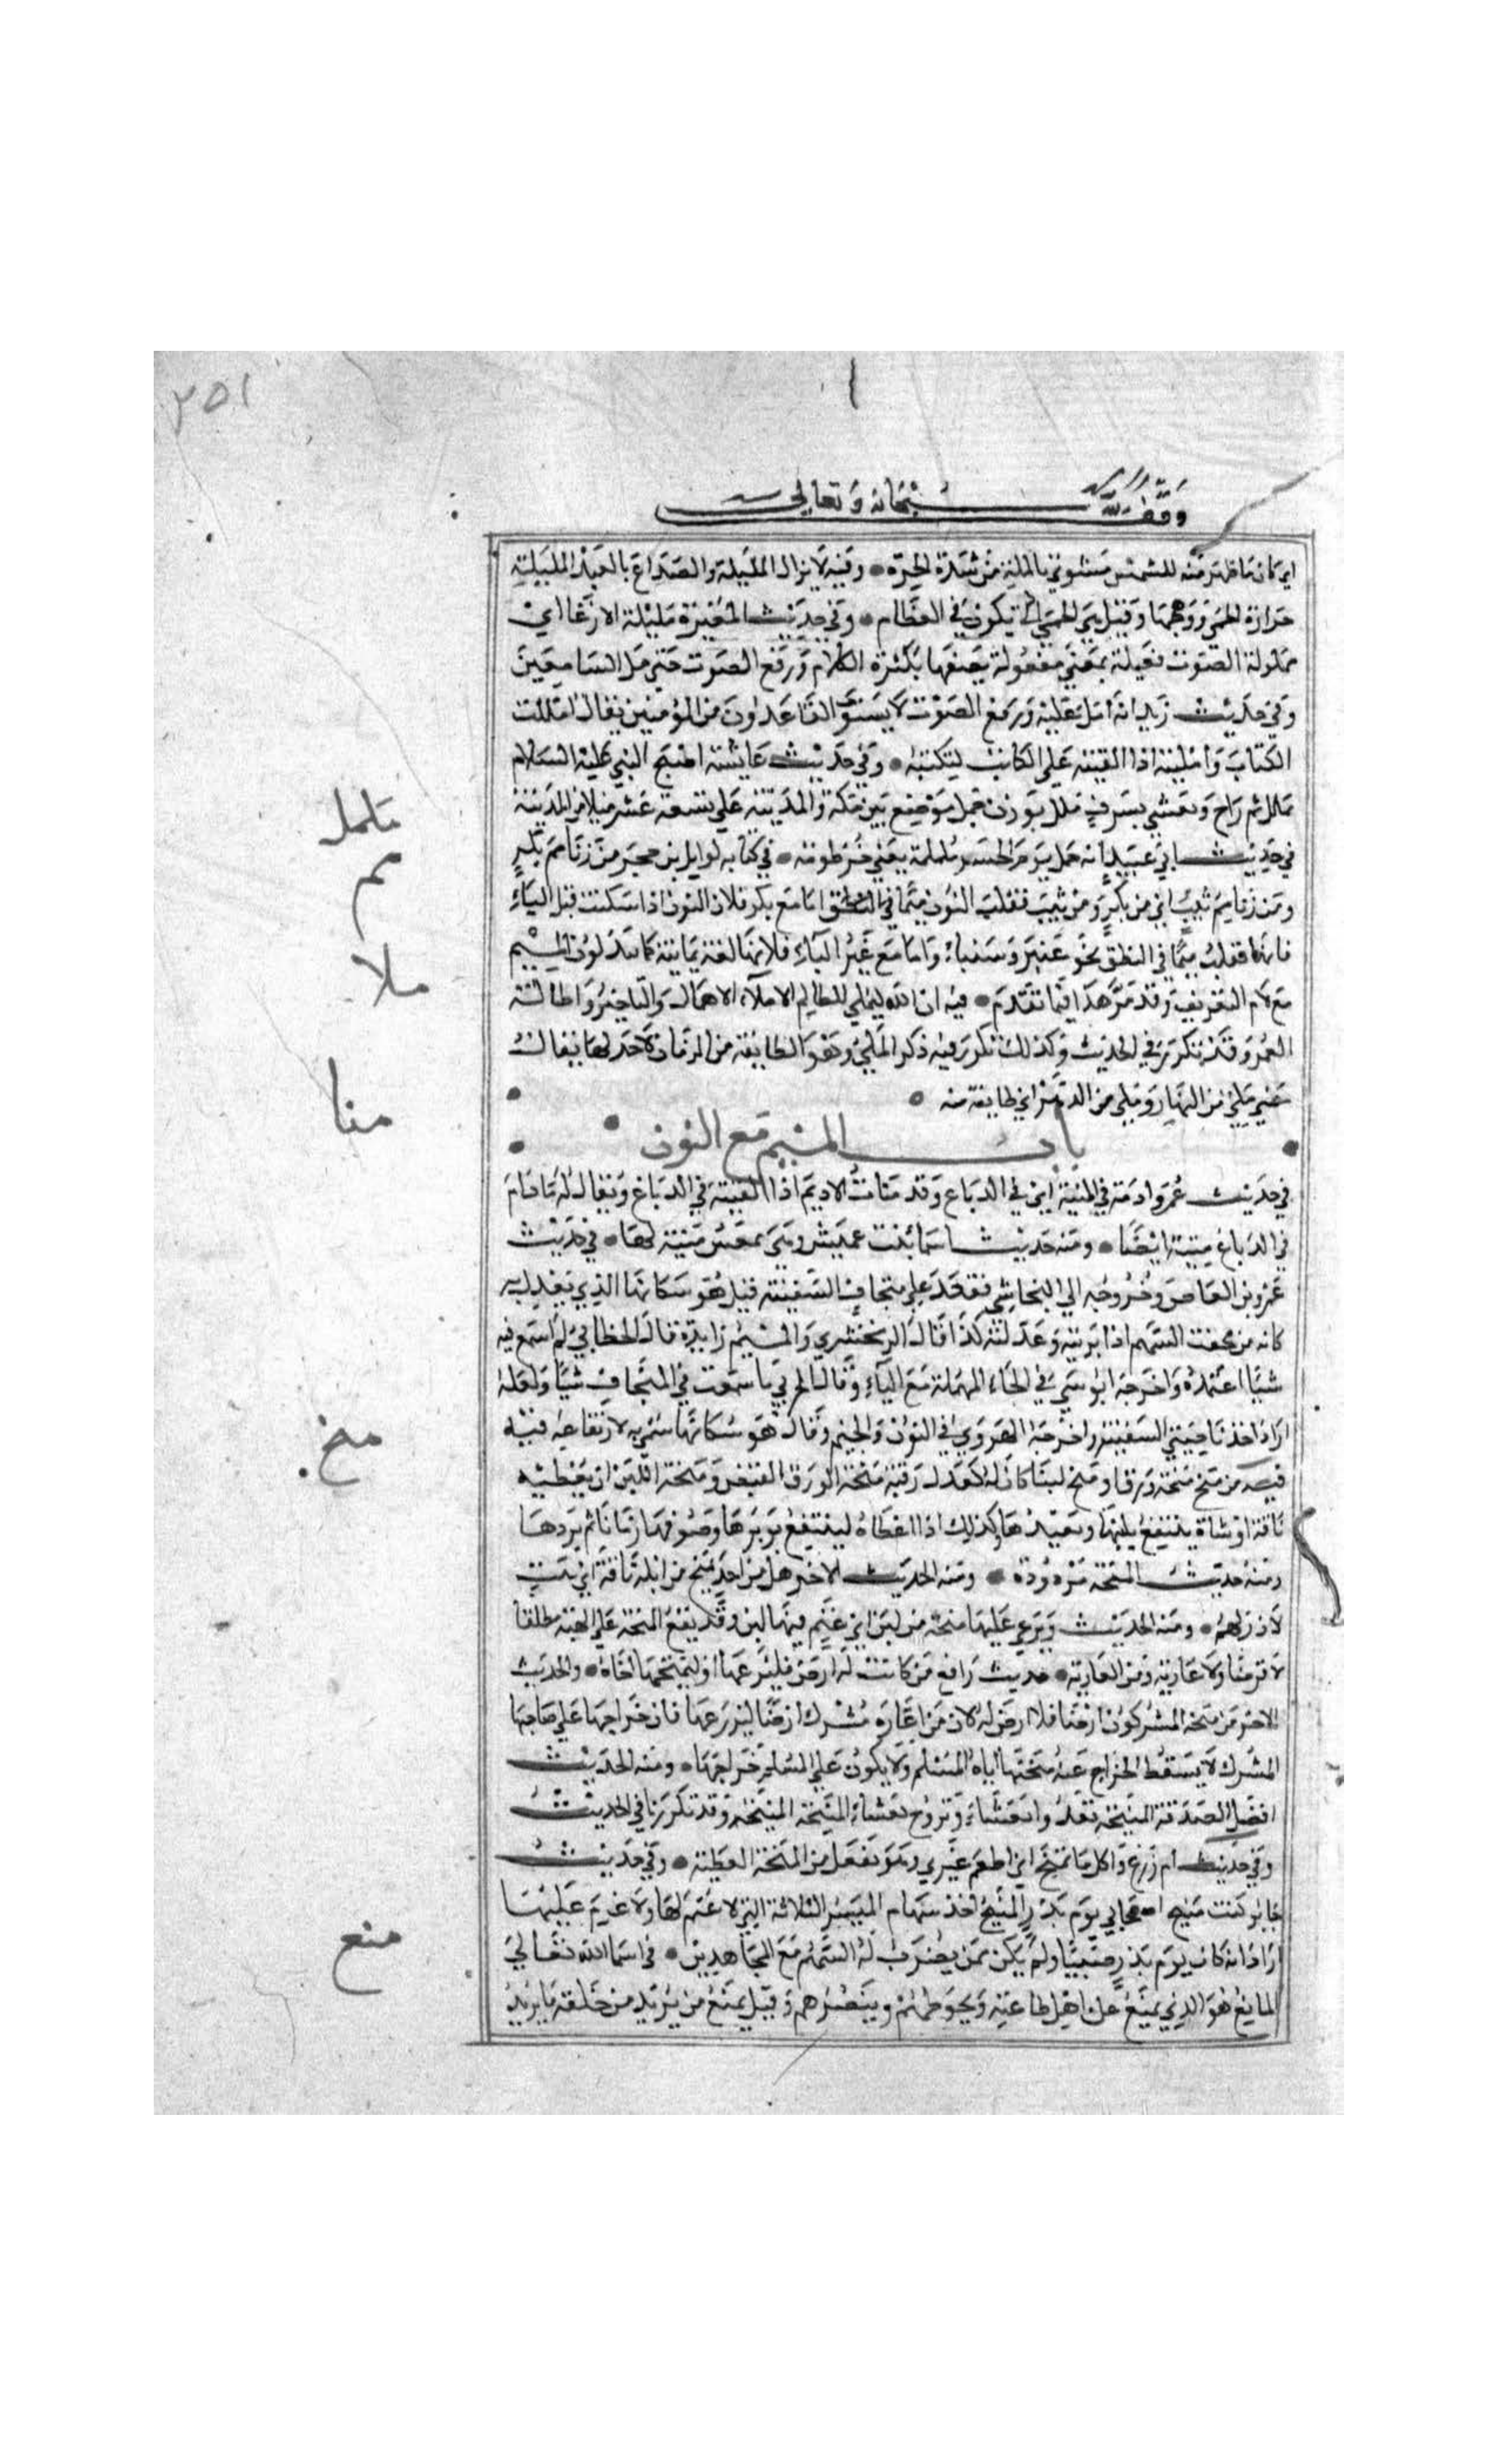 ٣٥١
وقف لله سبحانه وتعالى
اي كان ما ظهر منه للشمس مشوي بالملة من شدة الحرة • وفيه لا يزال المليلة والصداع بالعبد المليلة
حرارة الحمى ووهجها وقيل هي الحمى التي تكون في العظام • وفي حديث المغيرة مليلة الارغا اي
مملولة الصوت فعيلة بمعنى مفعولة يصفها بكثرة الكلام ورفع الصوت حتى مل السامعين
وفي حديث زيد انه امل عليه ورفع الصوت لا يستوي القاعدون من المؤمنين يقال امللت
الكتاب وامليته اذا القيته على الكاتب ليكتبه • وفي حديث عايشة اصبح النبي عليه السلام
بملل ثم راح وتعشى بسرف ملل بوزن جمل موضع بين مكة والمدينة على تسعة عشر ميلا من المدينة
في حديث ابي عبيد انه حمل يوم الجسر ململمة يعني خرطومه • في كتابه لوايل بن حجر من زنا مم بكر
ومن زنا مم ثيب اي من بكر ومن ثيب فقلب النون ميما في النطق اما مع بكر فلان النون اذا سكنت قبل الباء
فانها تقلب ميما في النطق نحو عنبر وشنباء واما مع غير الباء فلانها لغة يمانية كما تبدلون الميم
مع لام التعريف وقد مر هذا فيما تقدم • فيه ان الله ليملي للظالم الاملاء الامهال والتاخير واطالة
العمر وقد تكرر في الحديث وكذلك تكرر فيه ذكر الملي وهو الطايفة من الزمان لا حد لها يقال
مضى ملي من النهار وملي من الدهر اي طايفة منه •
باب الميم مع النون
في حديث عمر وادمة في المنية اي في الدباغ وقد منات الاديم اذا القيته في الدباغ ويقال له ما دام
في الدباغ منيئة ايضا • ومنه حديث اسما بنت عميس وهي تمعس منيئة لها • في حديث
عمرو بن العاص وخروجه الى النجاشي فقعد على منجاف السفينة قيل هو سكانها الذي تعدل به
كانه من نجفت السهم اذا بريته وعدلته كذا قال الزمخشري والميم زايدة قال الخطابي لم اسمع فيه
شيا اعتمده واخرجه ابو موسى في الحاء المهملة مع الياء وقال الحربي ما سمعت في المنجاف شيا ولعله
اراد اخذ ناحيتي السفينة واخرجه الهروي في النون والجيم وقال هو سكانها سمي به لارتفاعه فيه
من منح منحة ورقا او منح لبنا كان له كعدل رقبة منحة الورق القرض ومنحة اللبن ان يعطيه
ناقة او شاة ينتفع بلبنها ويعيدها وكذلك اذا اعطاه لينتفع بوبرها وصوفها زمانا ثم يردها
ومنه حديث المنحة مردودة • ومنه الحديث الاخر هل من احد يمنح من ابله ناقة اهل بيت
لا در لهم • ومنه الحديث ويرعى عليها منحة من لبن اي غنم فيها لبن وقد يقع المنحة على الهبة مطلقا
لا قرضا ولا عارية ومن العارية • حديث رافع من كانت له ارض فليزرعها او ليمنحها اخاه • والحديث
الاخر من منحه المشركون ارضا فلا ارض له لان من اعاره مشرك ارضا ليزرعها فان خراجها على صاحبها
المشرك لا يسقط الخراج عنه منحتها اياه المسلم ولا يكون على المسلم خراجها • ومنه الحديث
افضل الصدقة المنيحة تغدو بعشاء وتروح بعشاء المنيحة المنحة وقد تكررتا في الحديث
وفي حديث ام زرع واكل فاتمنح اي اطعم غيري وهو تفعل من المنحة العطية • وفي حديث
جابر كنت منيح اصحابي يوم بدر المنيح احد سهام الميسر الثلاثة التي لا غنم لها ولا غرم عليها
اراد انه كان يوم بدر صبيا ولم يكن ممن يضرب له السهم مع المجاهدين • في اسما الله تعالى
المانع هو الذي يمنع عن اهل طاعته ويحوطهم وينصرهم وقيل يمنع من يريد من خلقه ما يريد
ململ
مم
ملا
منا
منح
منع